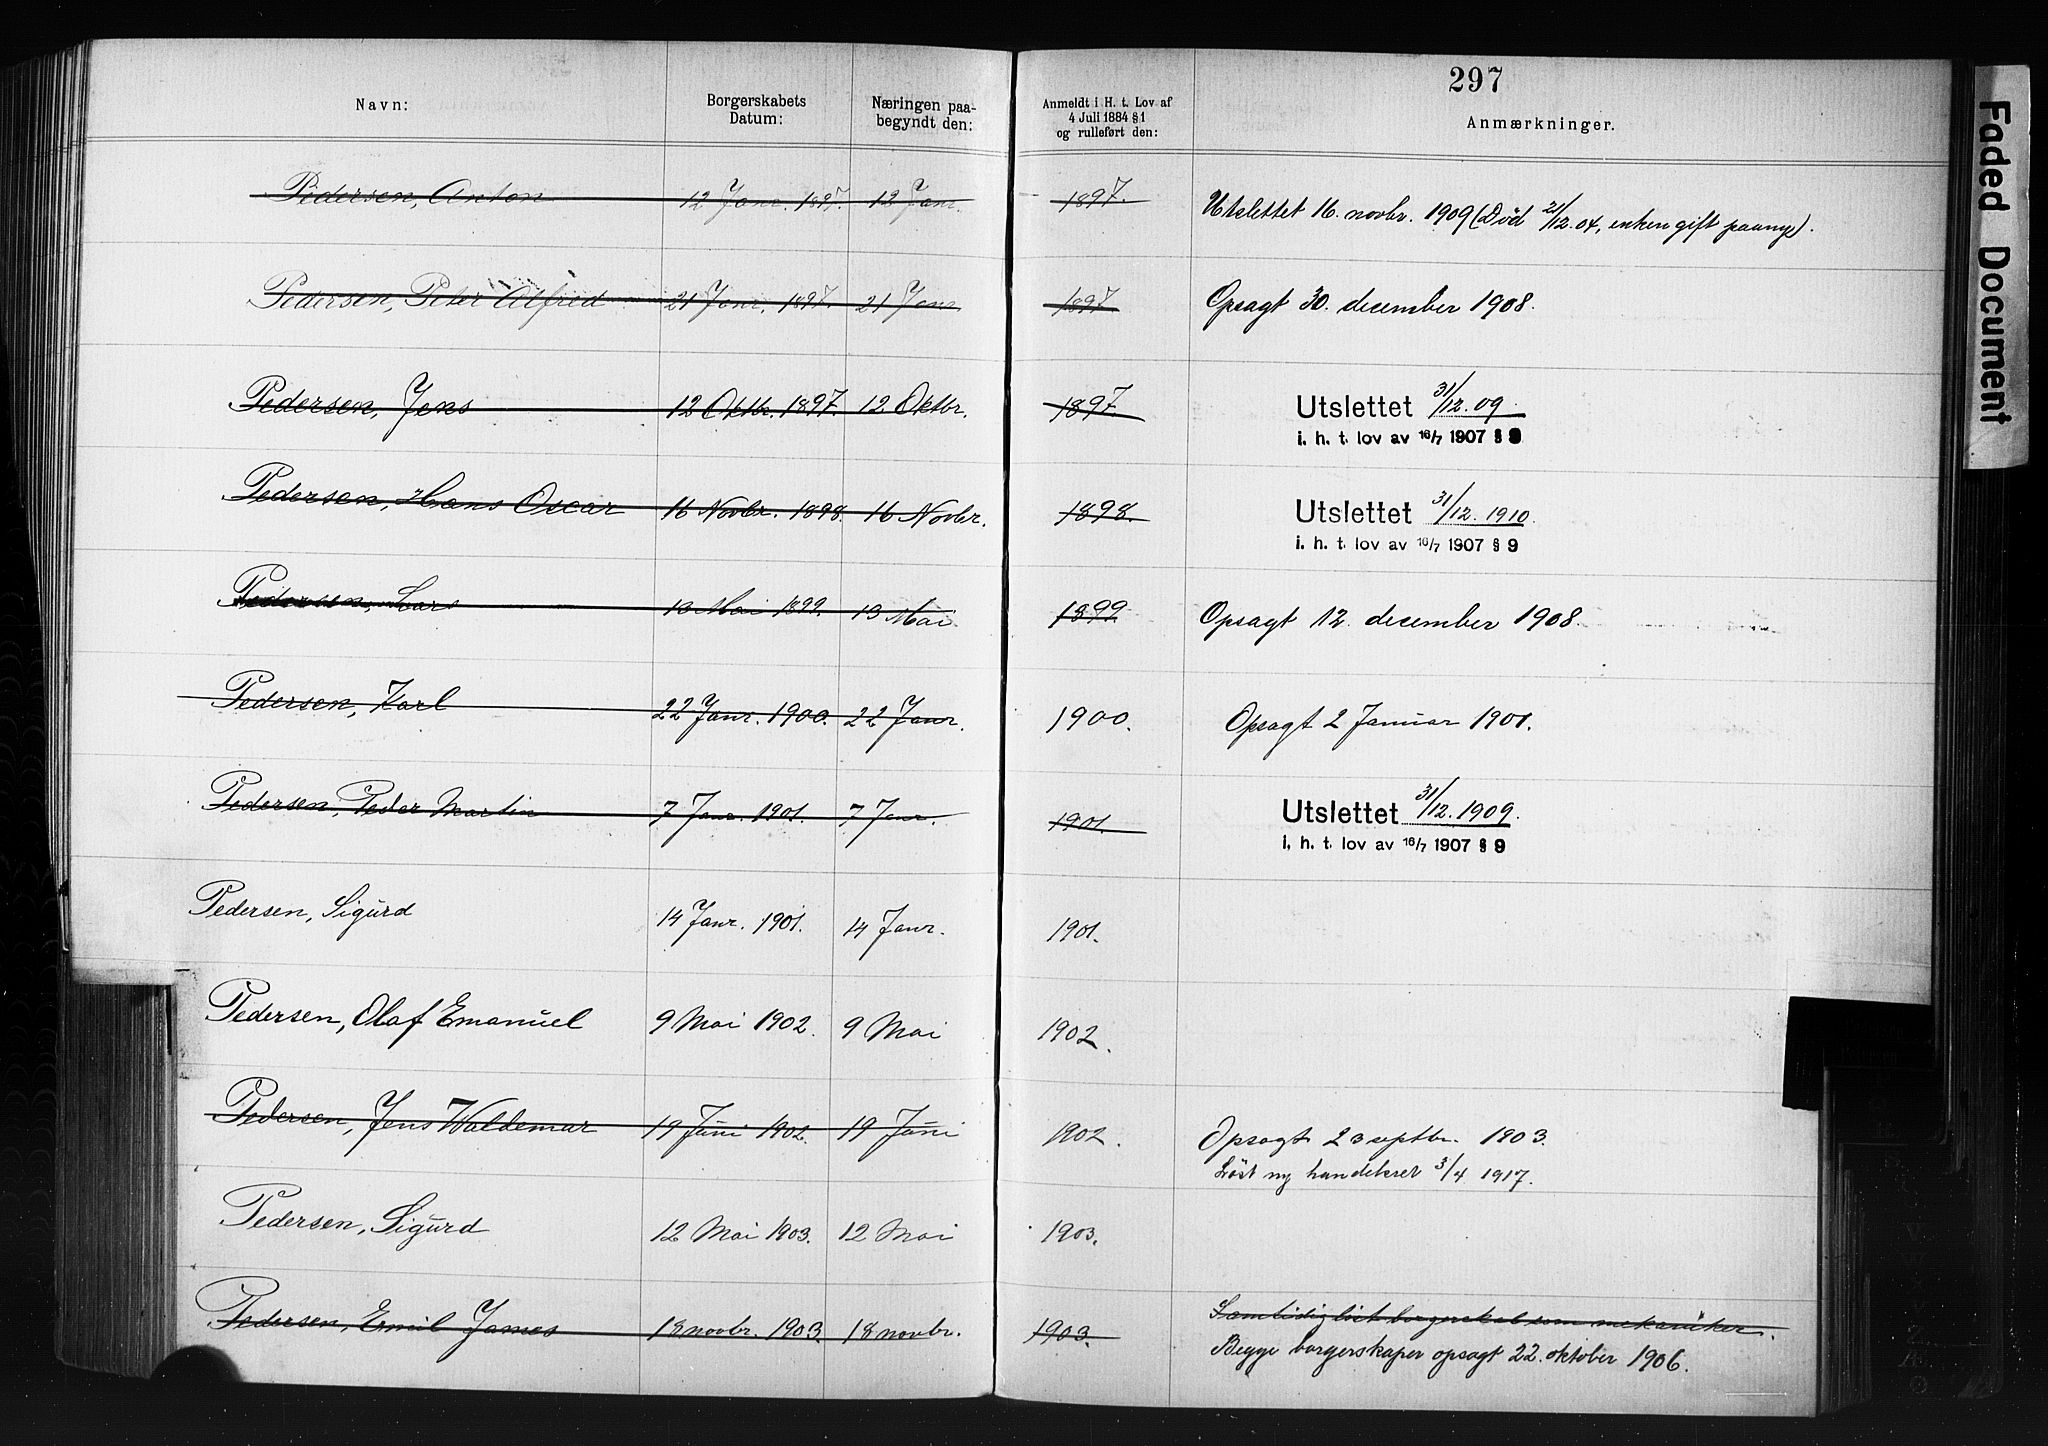 297
Navn:
Borgerskabets Datum:
Næringen paa-begyndt den:
Anmeldt i H. t. Lov af 4 Juli 1884 § 1 og rulleført den:
Anmærkninger.
Pedersen, Anton 12 Janr. 1897. 12 Janr. 1897. Utslettet 16. novbr. 1909 (Død 21/12.04, enken gift paany).
Pedersen, Peter Alfred 21 Janr. 1897. 21 Janr 1897 Opsagt 30. december 1908.
Pedersen, Jens 12 Oktbr. 1897. 12 Oktbr. 1897. Utslettet 31/12.09.
i. h. t. lov av 16/7 1907 § 9
Pedersen, Hans Oscar 16 Novbr. 1898. 16 Novbr. 1898. Utslettet 31/12.1910.
i. h. t. lov av 16/7 1907 § 9
Pedersen, Lars 13 Mai 1899. 13 Mai 1899 Opsagt 12. december 1908.
Pedersen, Karl 22 Janr. 1900. 22 Janr. 1900. Opsagt 2 Januar 1901.
Pedersen, Peder Martin 7 Janr. 1901. 7 Janr. 1901. Utslettet 31/12.1909.
i. h. t. lov av 16/7 1907 § 9
Pedersen, Sigurd 14 Janr. 1901. 14 Janr. 1901.
Pedersen, Olaf Emanuel 9 Mai 1902. 9 Mai 1902.
Pedersen, Jens Waldemar 19 Juni 1902. 19 Juni 1902. Opsagt 23 septbr. 1903.
Løst ny handelsret 3/4 1917.
Pedersen, Sigurd 12 Mai 1903. 12 Mai 1903.
Pedersen, Emil James 18 novbr. 1903. 18 novbr. 1903. Samtidig løst borgerskab som mekaniker.
Begge borgerskaper opsagt 22. oktober 1906.
Faded Document